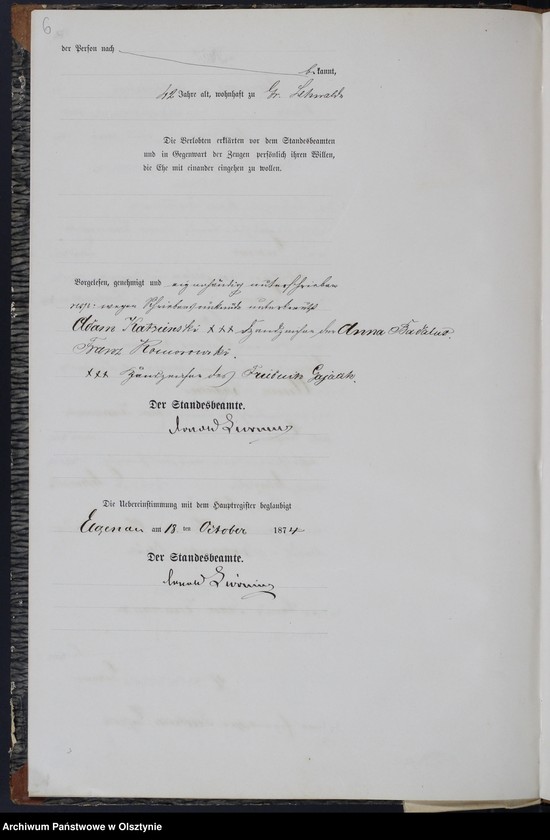 6
der Person nach
bekannt,
42 Jahre alt, wohnhaft zu Gr. Lehwalde
Die Verlobten erklärten vor dem Standesbeamten
und in Gegenwart der Zeugen persönlich ihren Willen,
die Ehe mit einander eingehen zu wollen.
Vorgelesen, genehmigt und eigenhändig unterschrieben
resp. wegen Schreibensunkunde unterkreuzt
Adam Katzinski +++ Handzeichen der Anna
Franz Komorowski.
+++ Handzeichen des Gajalik.
Der Standesbeamte.
Die Uebereinstimmung mit dem Hauptregister beglaubigt
Elgenau am 13 ten October 1874
Der Standesbeamte.
Archiwum Państwowe w Olsztynie